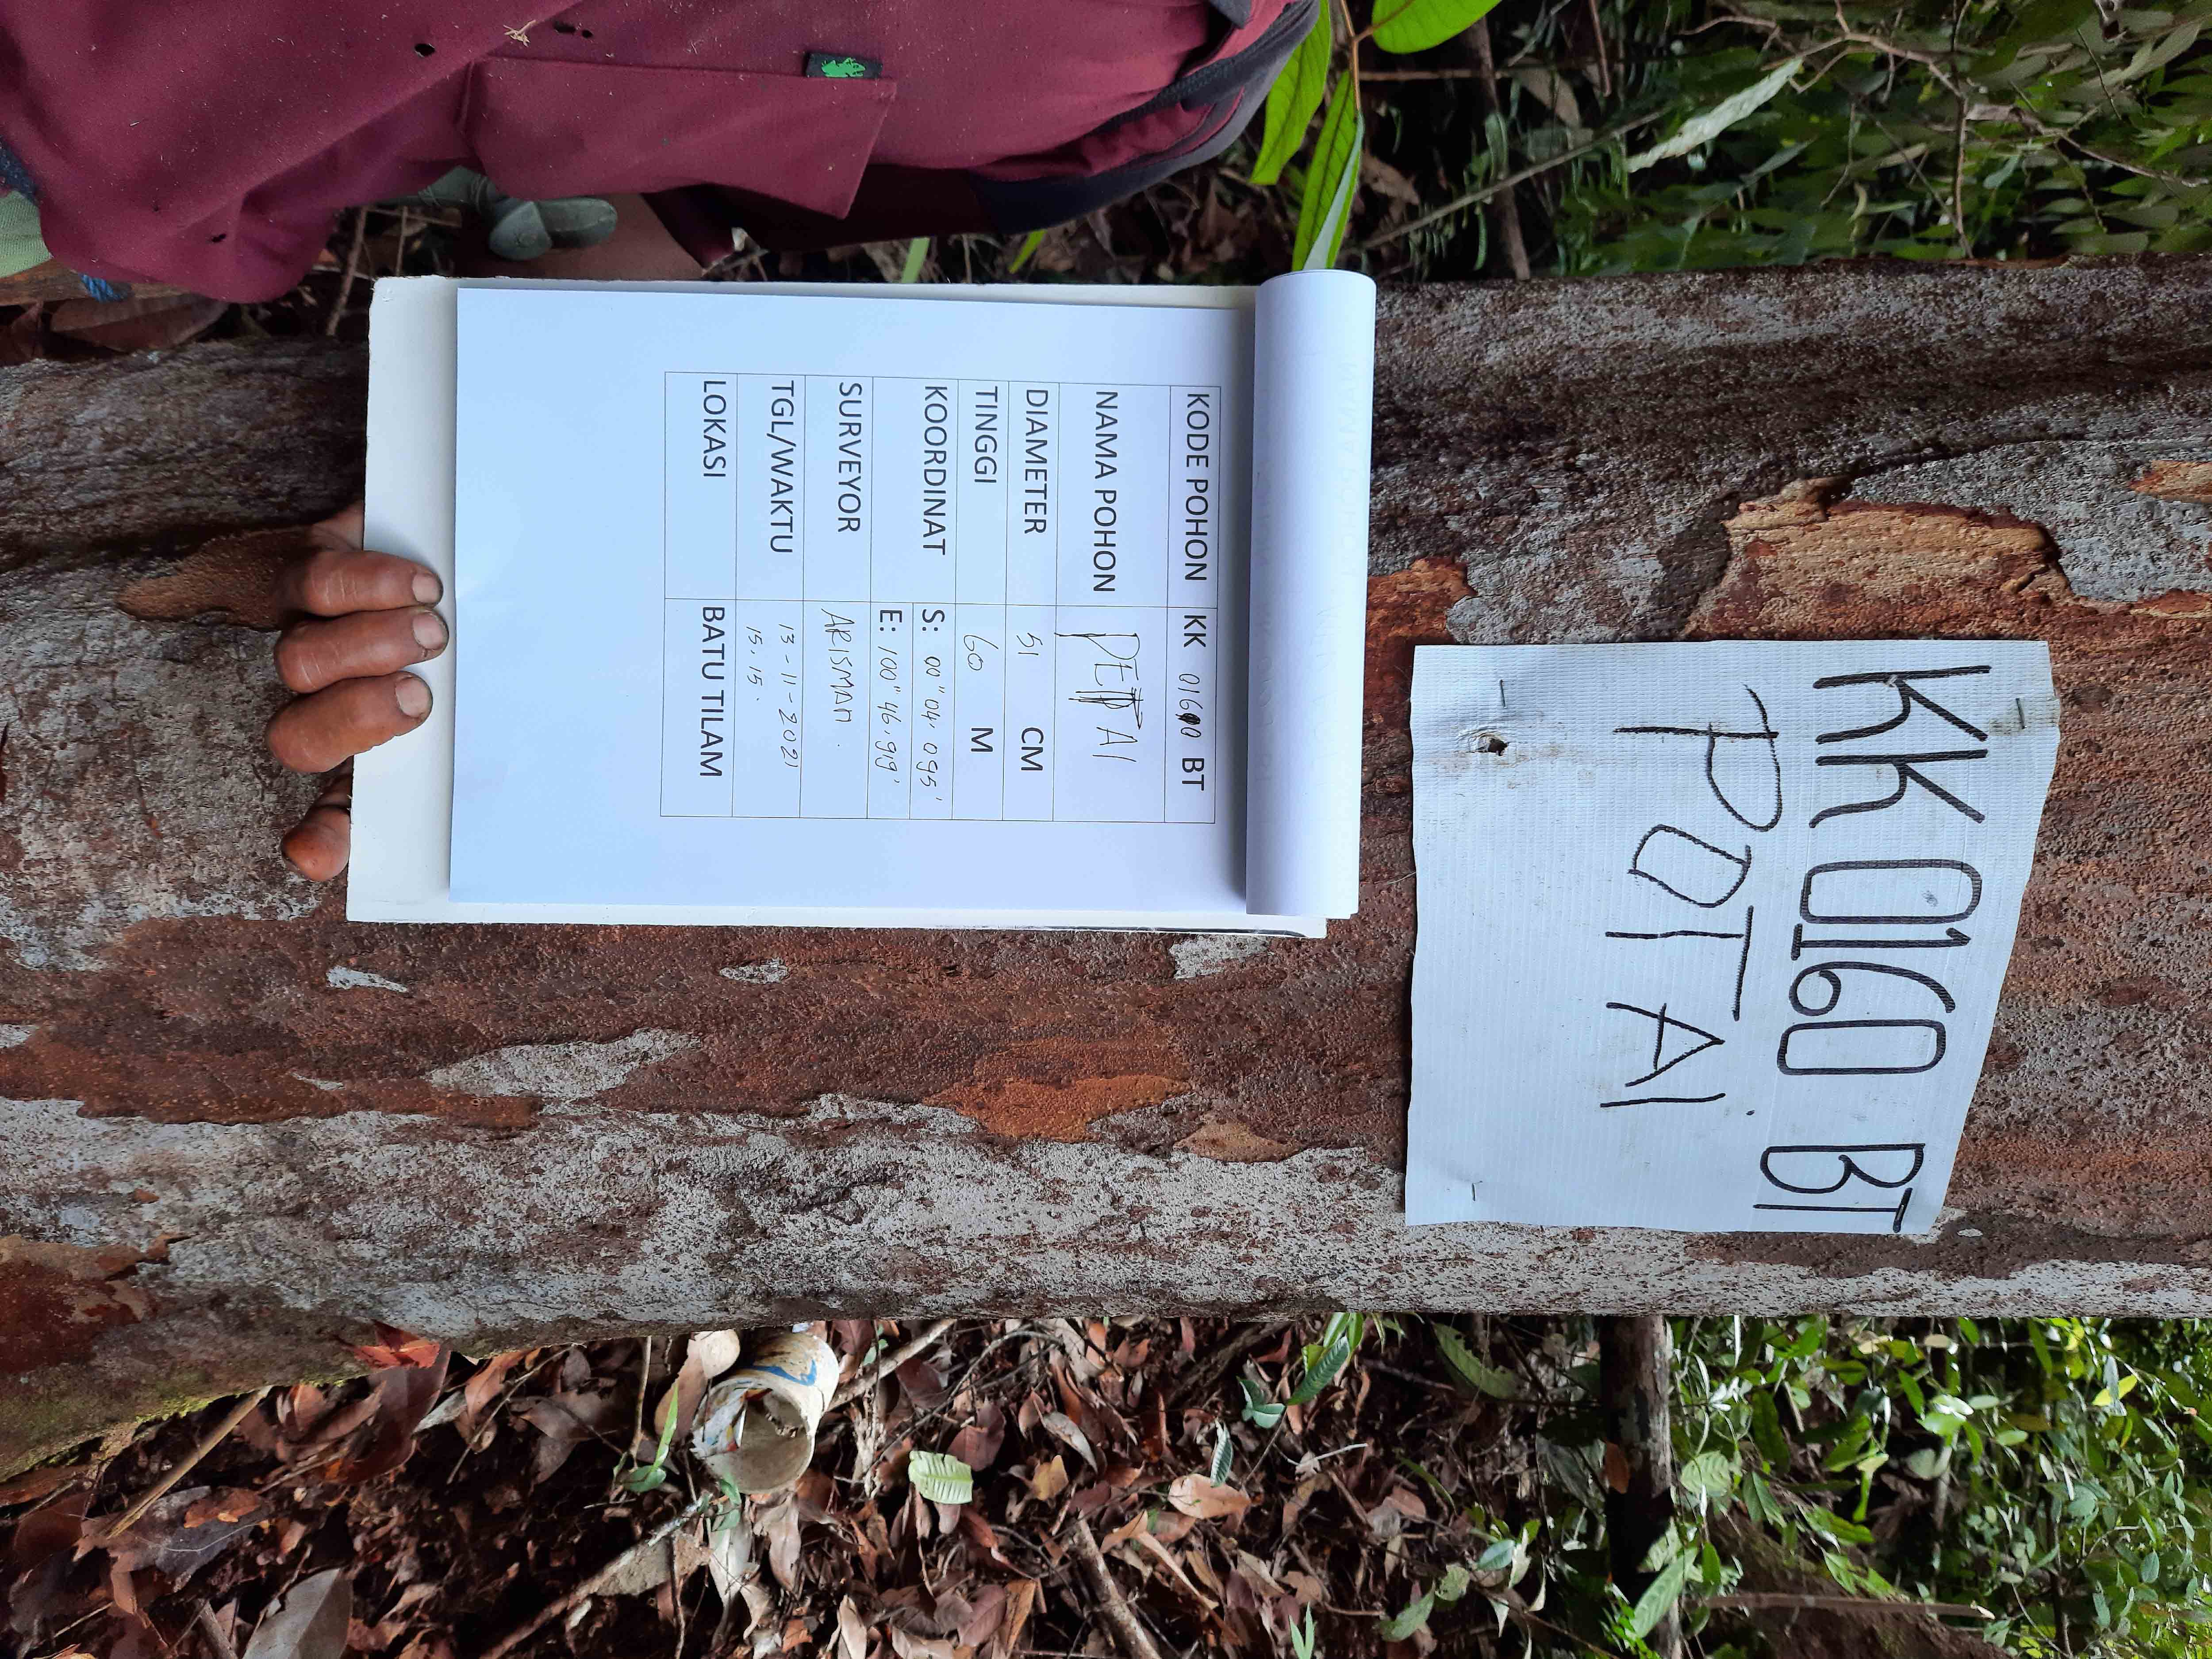 KK 0160 BT
POTAI
KODE POHON KK 0160 BT
NAMA POHON PETAI
DIAMETER 51 CM
TINGGI 60 M
KOORDINAT S: 00" 04, 095'
E: 100" 46, 919'
SURVEYOR ARISMAN.
TGL/WAKTU 13-11-2021
15.15.
LOKASI BATU TILAM